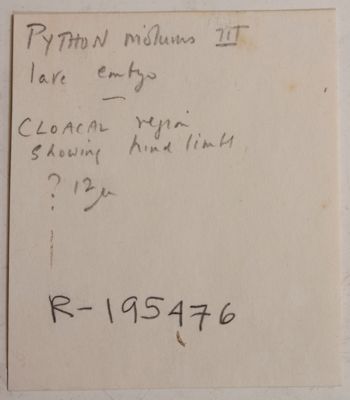 PYTHON molurus III
late embryo
CLOACAL region
showing hind limbs
? 12µ
R-195476